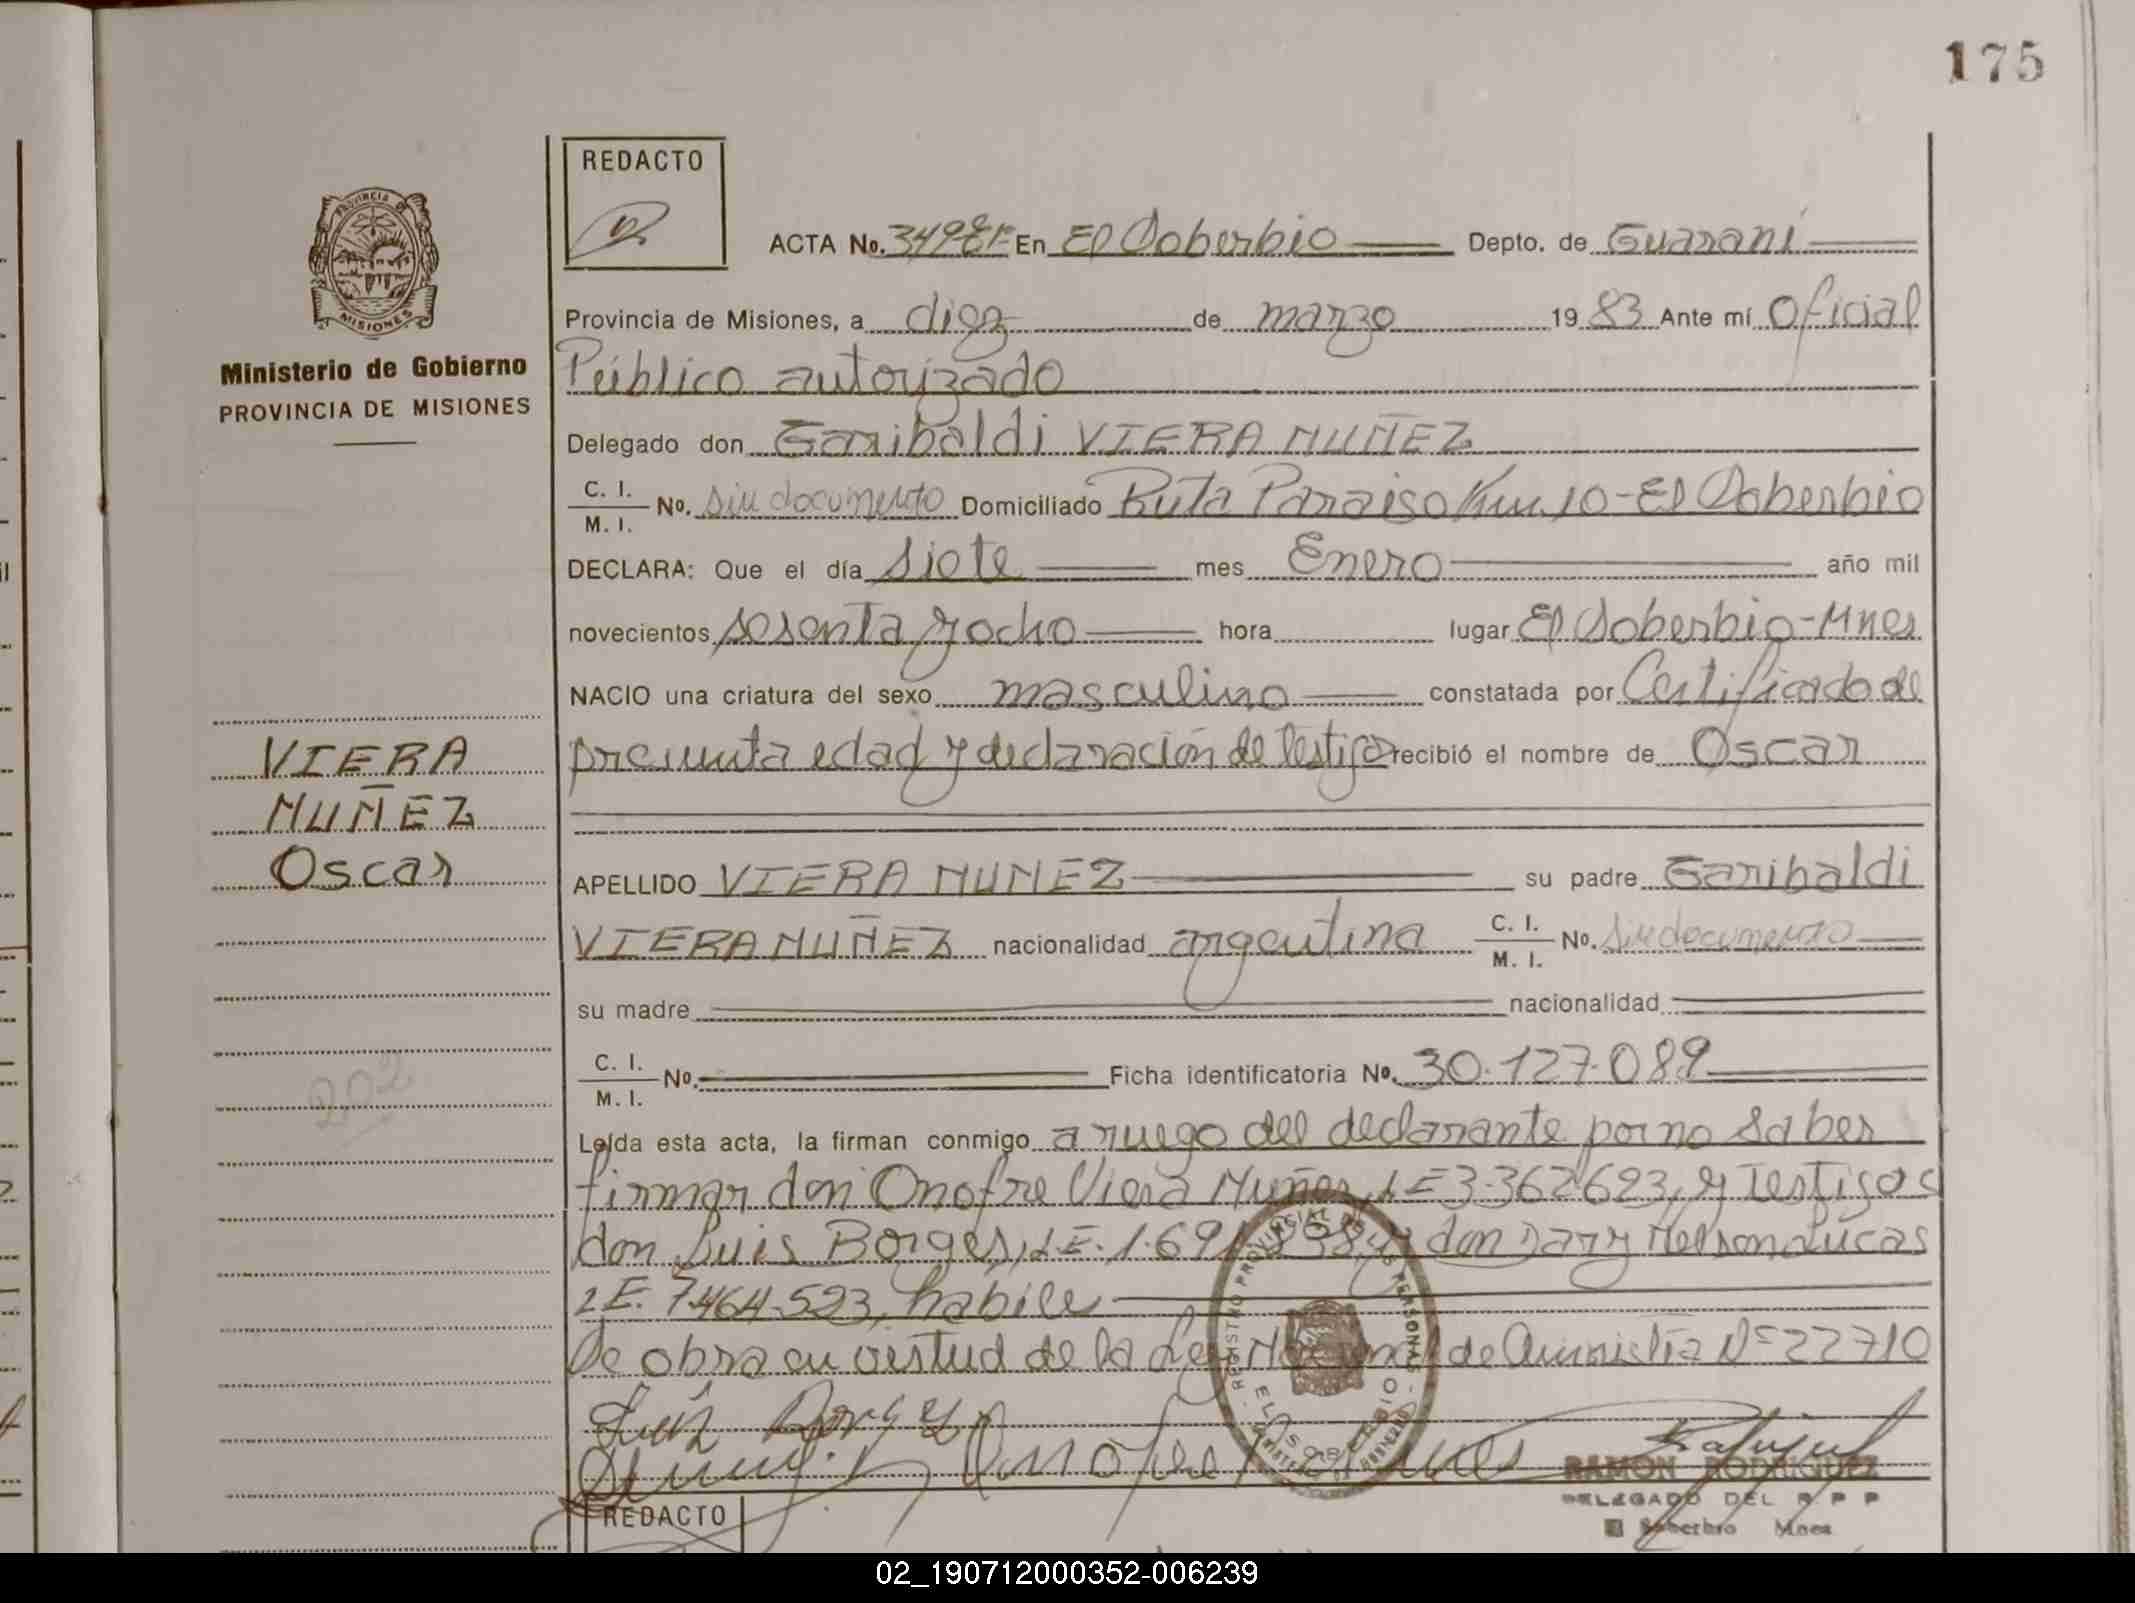 175
REDACTO
PROVINCIA DE
MISIONES
ACTA No. 349 En El Soberbio Depto. de Guaraní
Provincia de Misiones, a diez de marzo 1983 Ante mí Oficial
Ministerio de Gobierno
Público autorizado
PROVINCIA DE MISIONES
Delegado don Garibaldi VIERA NUÑEZ
C. I.
M. I.
No. sin documento Domiciliado Ruta Paraiso Km. 10 - El Soberbio
DECLARA: Que el día siete mes Enero año mil
novecientos sesenta y ocho hora lugar El Soberbio - Mnes
NACIO una criatura del sexo masculino constatada por Certificado de
presunta edad y declaración de testigos recibió el nombre de Oscar
VIERA
NUÑEZ
Oscar
APELLIDO VIERA NUÑEZ su padre Garibaldi
VIERA NUÑEZ nacionalidad argentina C. I.
M. I.
No. sin documento
su madre nacionalidad
C. I.
M. I.
No. Ficha identificatoria No. 30.127.089
202
Leída esta acta, la firman conmigo a ruego del declarante por no saber
firmar don Onofre Viera Nuñez, LE 3.362623, y Testigos
don Luis Borges, L.E. 1.691 y don Dary Nelson Lucas
LE. 7.464.523, habiles
De obra en virtud de la Ley Nacional de Amnistia Nº 22710
Luis Borges
Onofre
REGISTRO PROVINCIAL DE LAS PERSONAS
EL SOBERBIO
RAMON RODRIGUEZ
DELEGADO DEL R P P
El Soberbio Mnes
REDACTO
02_190712000352-006239